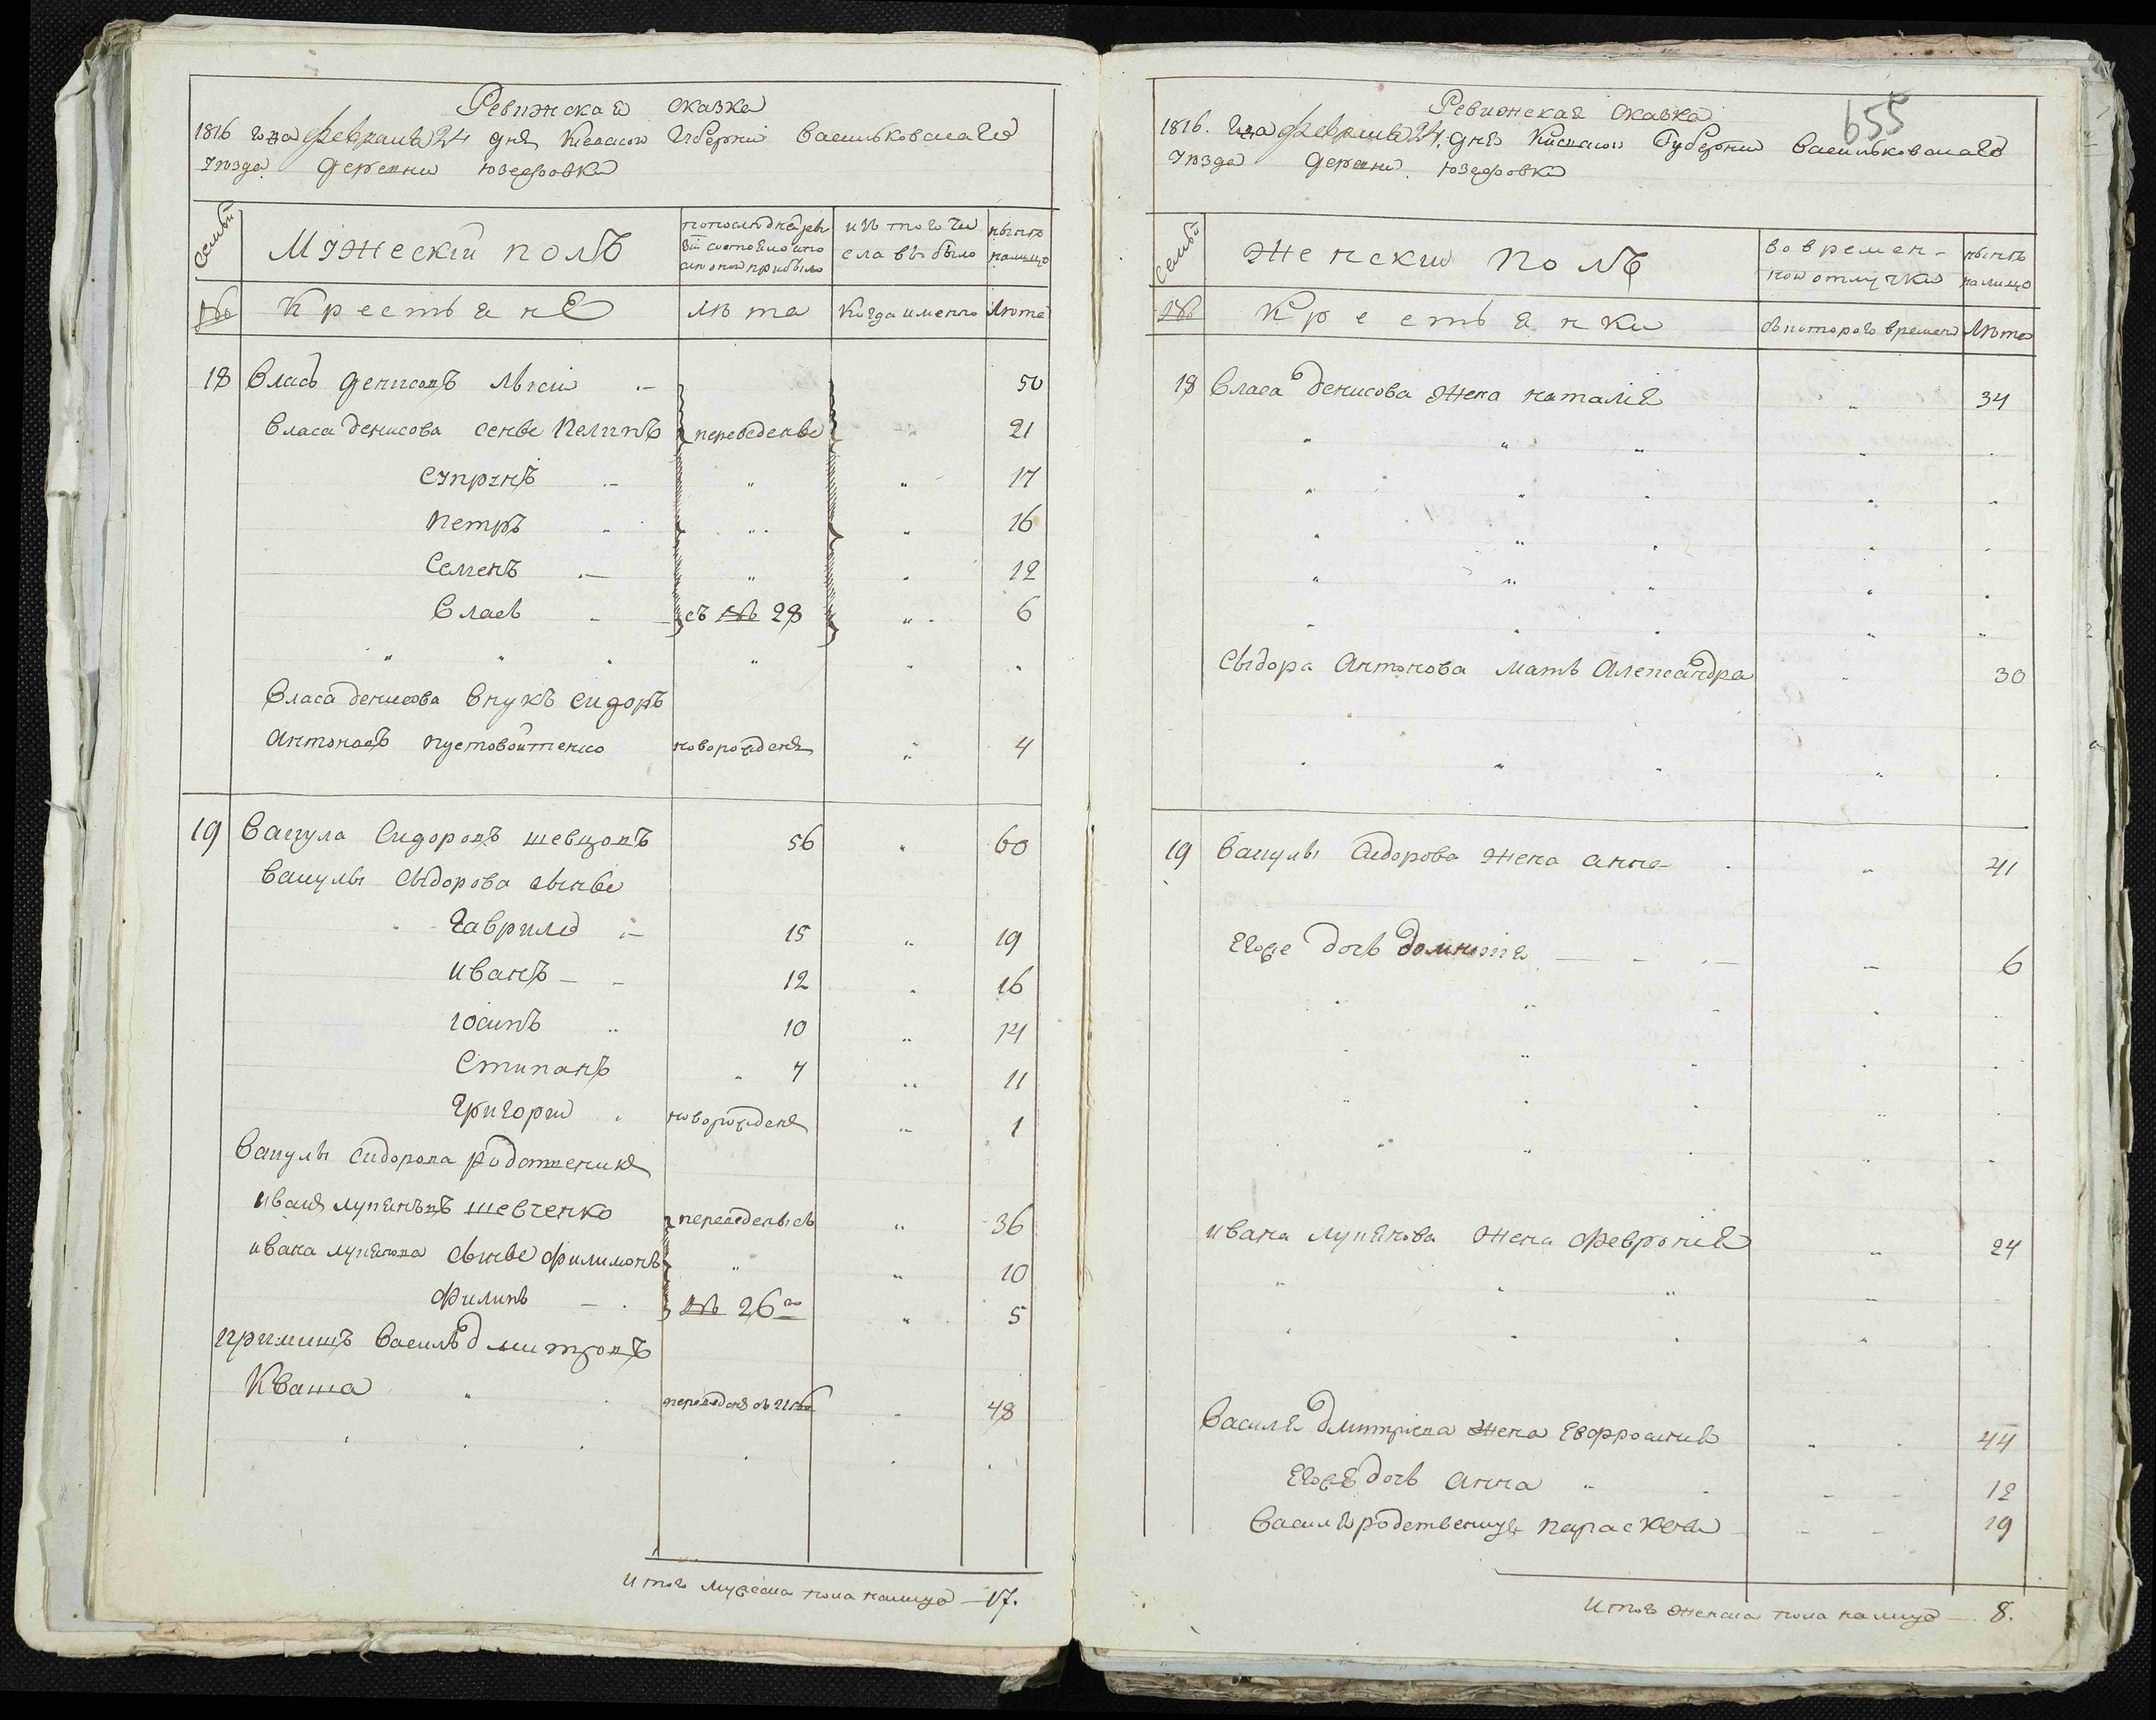 Ревижская сказка
1816 года февраля 24 дня Киевской Губернии Васильковскаго
уезда деревни Юзефовки
Семьи
Мужескій полъ
по последней ревизіи состояло и по оной прибыло
изъ того числа выбыло
нынѣ налицо
№
Крестьяне
Лѣта
Когда именно
Лѣта
18 Власъ Денисовъ Лысий 50
Власа Денисова сенве Пелипъ переведенве 21
Супрунъ 17
Петръ 16
Семенъ 12
Власъ съ № 28 6
Власа Денисова внукъ Сидоръ
Антоновъ Пустовойтенко новорожденя 4
19 Вакула Сидоровъ Шевцовъ 56 60
Вакулы Сыдорова сынве
Гаврило 15 19
Иванъ 12 16
Іосипъ 10 14
Стипанъ 7 11
Григории новорожденя 1
Вакулы Сидорова родственикъ
Иванъ Лупяновъ Шевченко переведены съ 36
Ивана Лупянова сынве Филимонъ 10
Филипъ № 26го 5
примишъ Василь Дмитровъ
Кваша переведеня съ 21 № 48
Итого мужеска пола налицо — 17.
655
Ревижская Сказка
1816. года февраля 24. дня Киевской Губернии Васильковскаго
уезда деревни Юзефовки
Семьи
Женский Полъ
во времен-
ной отлучки
нынѣ
налицо
№
Крестьянки
съ которого времени
Лѣта
18 Власа Денисова жена Наталия 34
Сыдора Антонова мать Александра 30
19 Вакулы Сидорова жена Анна 41
Егоже дочь Домникия 6
Ивана Лупянова жена Феврония 24
Василя Дмитриева жена Евфросиния 44
Егожъ дочь Анна 12
Василя родственица Параскева 19
Итого женска пола налицо — 8.